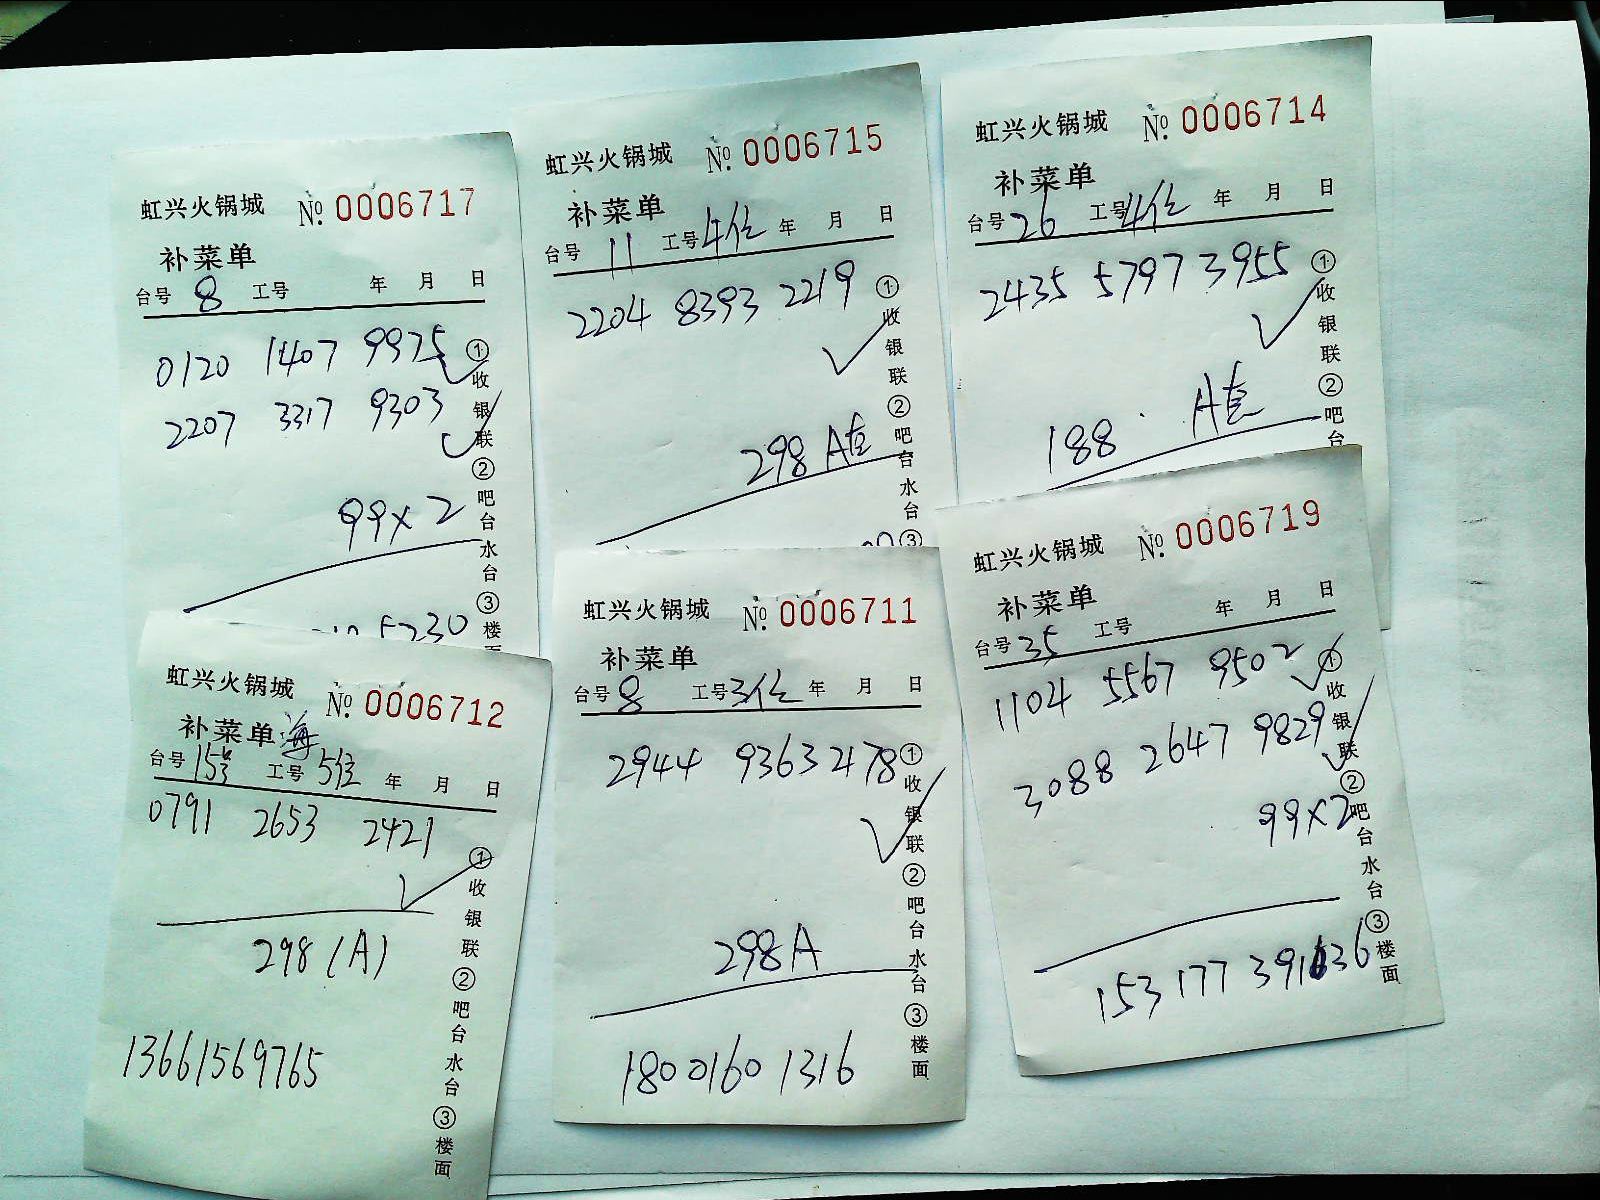 虹兴火锅城 No. 0006717
补菜单
台号 8 工号 年 月 日
0120 1407 9975
2207 3317 9303
99x2
5230
①收银联②吧台水台③楼面
虹兴火锅城 No. 0006715
补菜单
台号 11 工号 4位 年 月 日
2204 8393 2219
298 A套
①收银联②吧台水台③
虹兴火锅城 No. 0006714
补菜单
台号 26 工号 4位 年 月 日
2435 5797 3955
188 A套
①收银联②吧台
虹兴火锅城 No. 0006712
补菜单 海
台号 15号 工号 5位 年 月 日
0791 2653 2421
298(A)
13661569765
①收银联②吧台水台③楼面
虹兴火锅城 No. 0006711
补菜单
台号 8 工号 3位 年 月 日
2944 9363 2478
298A
180 0160 1316
①收银联②吧台水台③楼面
虹兴火锅城 No. 0006719
补菜单
台号 35 工号 年 月 日
1104 5567 9502
3088 2647 9829
99x2
153 177 391636
①收银联②吧台水台③楼面